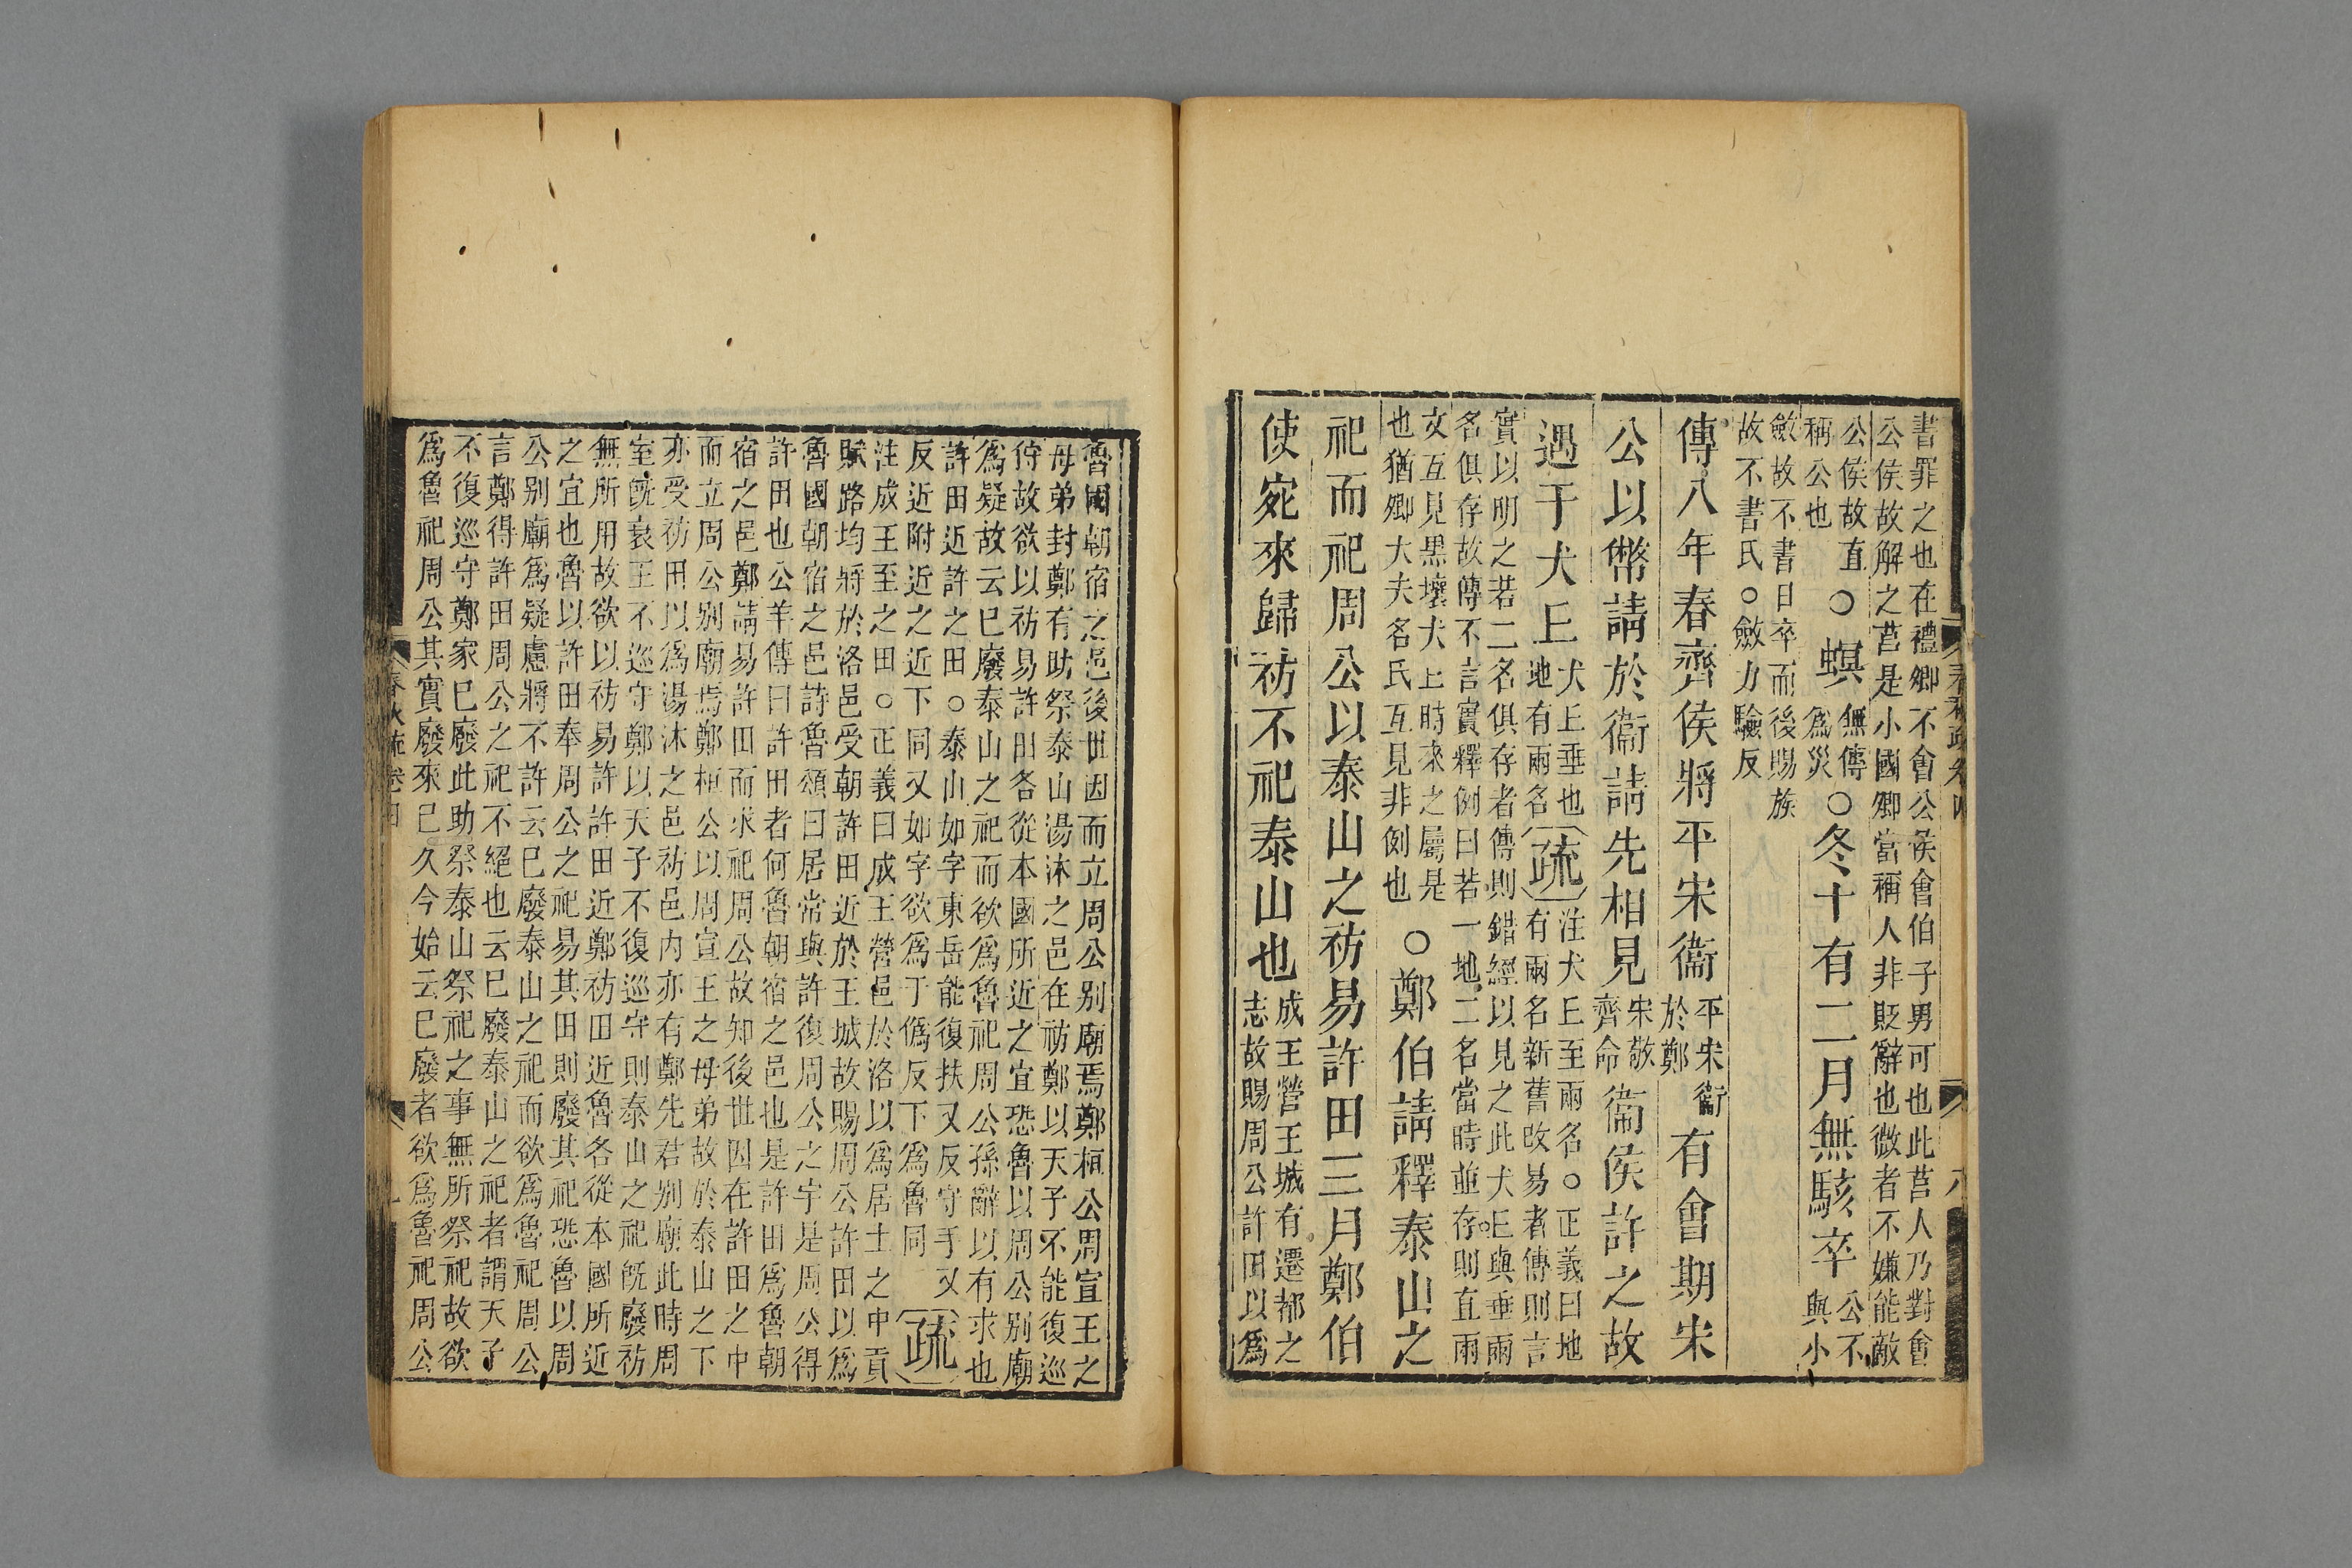 書罪之也在禮卿不會公侯會伯子男可也此莒人乃對會
公侯故解之莒是小國卿當稱人非貶辭也微者不嫌能敵
公侯故直稱公也○螟無傳為災○冬十有二月無駭卒公不與小
斂故不書日卒而後賜族
故不書氏○斂力驗反
傳八年春齊侯將平宋衞平宋衞於鄭有會期宋
公以幣請於衞請先相見宋敬齊命衞侯許之故
遇于犬丘犬丘垂也地有兩名疏注犬丘至兩名○正義曰地有兩名新舊改易者傳則言
實以明之若二名俱存者傳則錯經以見之此犬丘與垂兩
名俱存故傳不言實釋例曰若一地二名當時並存則直兩
文互見黑壤犬丘時來之屬是也猶卿大夫名氏互見非例也○鄭伯請釋泰山之
祀而祀周公以泰山之祊易許田三月鄭伯
使宛來歸祊不祀泰山也成王營王城有遷都之志故賜周公許田以爲
魯國朝宿之邑後世因而立周公別廟焉鄭桓公周宣王之
母弟封鄭有助祭泰山湯沐之邑在祊鄭以天子不能復巡
狩故欲以祊易許田各從本國所近之宜恐魯以周公別廟
爲疑故云已廢泰山之祀而欲爲魯祀周公孫辭以有求也
許田近許之田○泰山如字東岳能復扶又反守手又
反近附近之近下同又如字欲爲于僞反下爲魯同疏
注成王至之田○正義曰成王營邑於洛以爲居土之中貢
賦路均將於洛邑受朝許田近於王城故賜周公許田以爲
魯國朝宿之邑詩魯頌曰居常與許復周公之宇是周公得
許田也公羊傳曰許田者何魯朝宿之邑也是許田爲魯朝
宿之邑鄭請易許田而求祀周公故知後世因在許田之中
而立周公別廟焉鄭桓公以周宣王之母弟故於泰山之下
亦受祊田以爲湯沐之邑祊邑内亦有鄭先君別廟此時周
室旣衰王不巡守鄭以天子不復巡守則泰山之祀旣廢祊
無所用故欲以祊易許許田近鄭祊田近魯各從本國所近
之宜也魯以許田奉周公之祀易其田則廢其祀恐魯以周
公別廟爲疑慮將不許云已廢泰山之祀而欲爲魯祀周公
言鄭得許田周公之祀不絕也云已廢泰山之祀者謂天子
不復巡守鄭家已廢此助祭泰山祭祀之事無所祭祀故欲
爲魯祀周公其實廢來已久今始云已廢者欲爲魯祀周公
春秋疏卷四